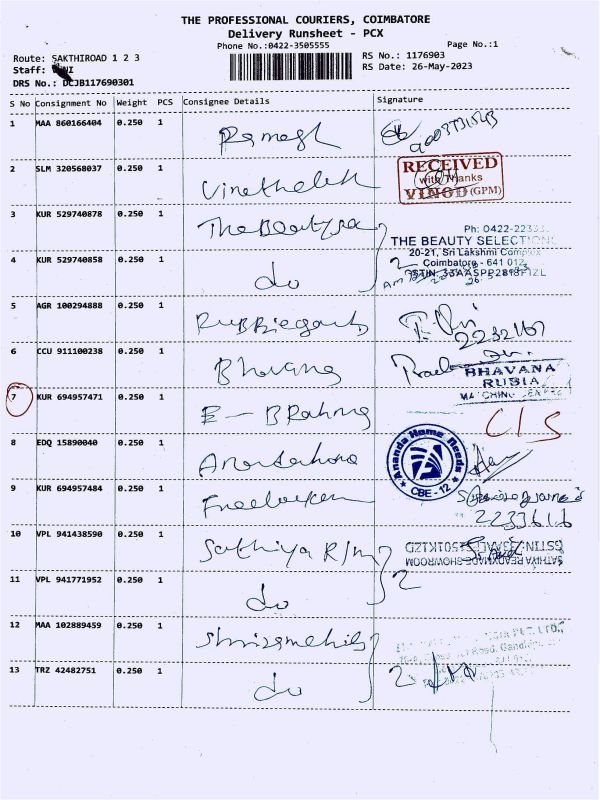 THE PROFESSIONAL COURIERS, COIMBATORE
Delivery Runsheet - PCX
Phone No.:0422-3505555
Page No.:1
Route: SAKTHIROAD 1 2 3
RS No.: 1176903
Staff:
RS Date: 26-May-2023
DRS No.: DCJB117690301
S No Consignment No Weight PCS Consignee Details Signature
1 MAA 860166404 0.250 1 Ramesh
2 SLM 320568037 0.250 1
RECEIVED
with Thanks
(GPM)
3 KUR 529740878 0.250 1 The Beauty
Ph: 0422-2233
THE BEAUTY SELECTIONS
20-21, Sri Lakshmi Complex
Coimbatore - 641 012
4 KUR 529740858 0.250 1 do 2
5 AGR 100294888 0.250 1
2232167
6 CCU 911100238 0.250 1 Bhavana
BHAVANA
RUBIA
MATCHING CENTRE
7 KUR 694957471 0.250 1 E - Brahma C/S
8 EDQ 15890040 0.250 1
Ananda Home Needs
CBE - 12
9 KUR 694957484 0.250 1
2233616
10 VPL 941438590 0.250 1 Sathiya R/m
SATHIYA READYMADE SHOWROOM
11 VPL 941771952 0.250 1 do 2
12 MAA 102889459 0.250 1
13 TRZ 42482751 0.250 1 do 2